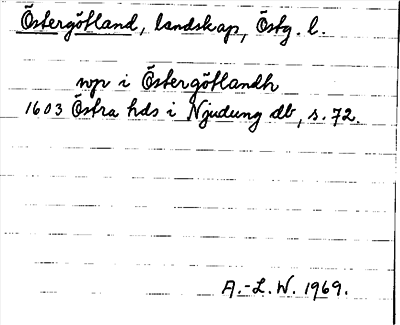 Östergötland, landskap, Östg. l.
wp i Östergötlandh
1603 Östra hds i Njudung db, s. 72.
A.-L.W. 1969.